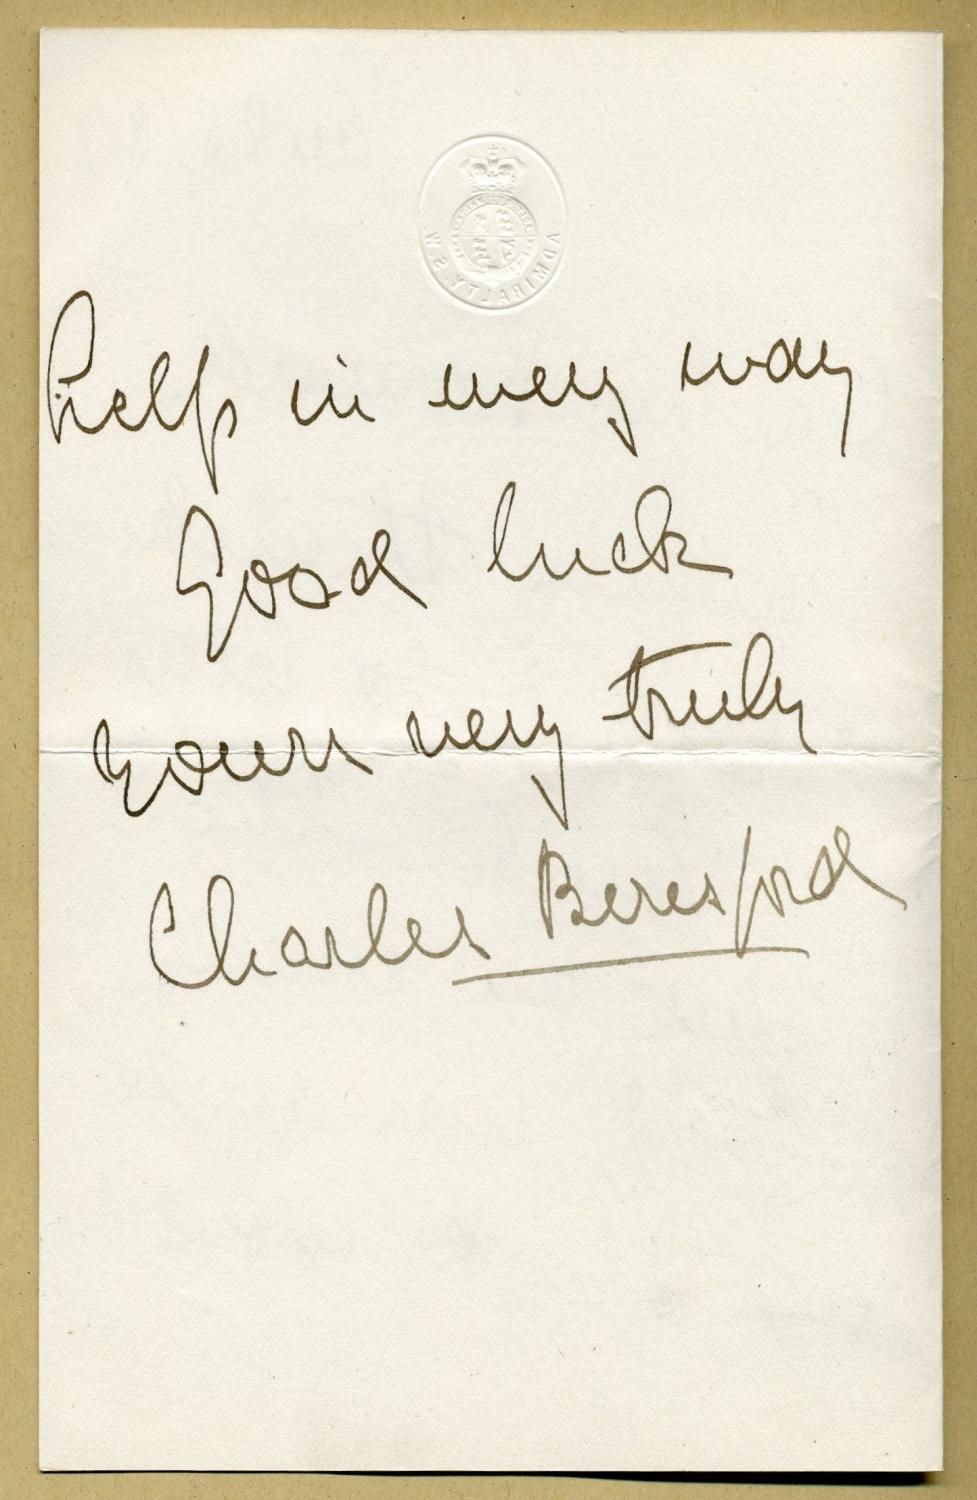 ADMIRALTY. S. W.
help in every way
Good luck
yours very truly
Charles Beresford